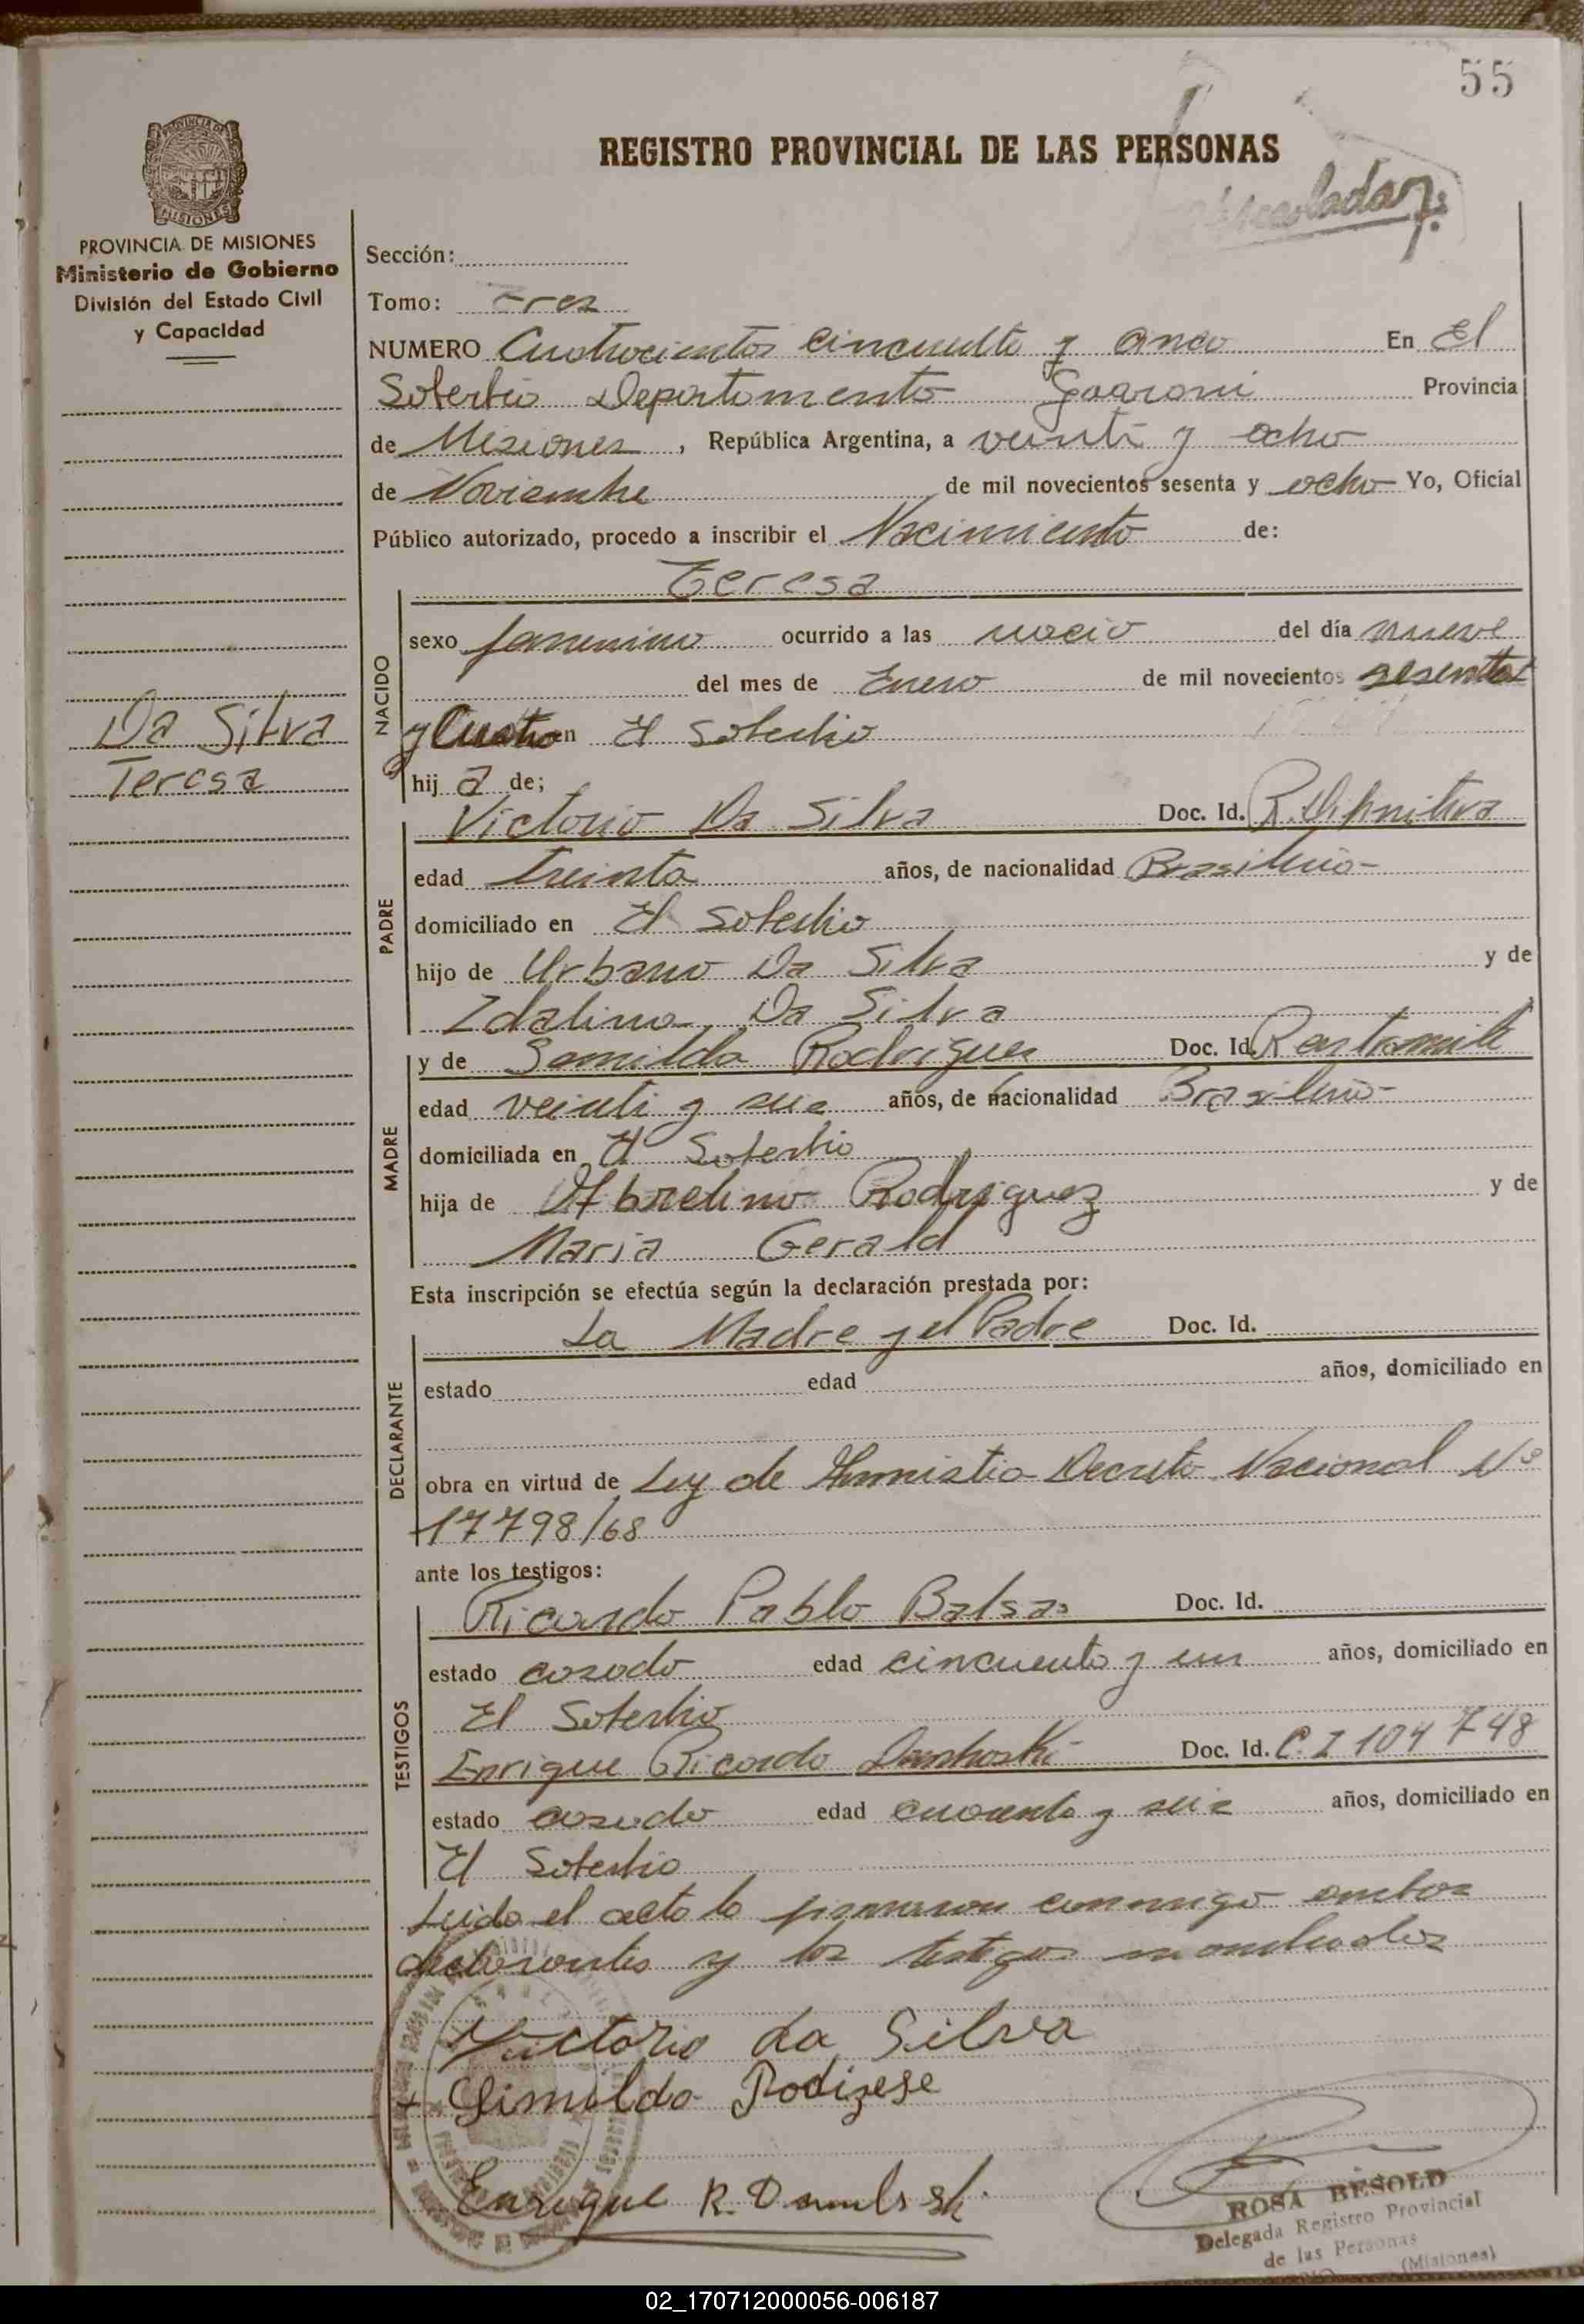 55
REGISTRO PROVINCIAL DE LAS PERSONAS
PROVINCIA DE MISIONES
Ministerio de Gobierno
División del Estado Civil
y Capacidad
Sección:
Tomo: Tres
NUMERO Cuatrocientos cincuenta y cinco En El
Soberbio Departamento Guarani Provincia
de Misiones, República Argentina, a veinti y ocho
de Noviembre de mil novecientos sesenta y ocho Yo, Oficial
Público autorizado, procedo a inscribir el Nacimiento de:
Teresa
NACIDO
sexo femenino ocurrido a las nacio del día nueve
del mes de Enero de mil novecientos sesenta
y Cuatro en El Soberbio
hij a de;
Da Silva
Teresa
PADRE
Victorio Da Silva Doc. Id. R. Definitiva
edad treinta años, de nacionalidad Brasileño
domiciliado en El Soberbio
hijo de Urbano Da Silva y de
Idalina Da Silva
MADRE
y de Rodrigues Doc. Id.
edad veinti y seis años, de nacionalidad Brasileño
domiciliada en El Soberbio
hija de Rodriguez y de
Maria Gerald
Esta inscripción se efectúa según la declaración prestada por:
DECLARANTE
La Madre y el Padre Doc. Id.
estado edad años, domiciliado en
obra en virtud de Ley de Amnistia Decreto Nacional Nº
17798/68
ante los testigos:
TESTIGOS
Ricardo Pablo Balsas Doc. Id.
estado casado edad cincuenta y un años, domiciliado en
El Soberbio
Enrique Ricardo Doc. Id. C.I 104748
estado casado edad cuarenta y seis años, domiciliado en
El Soberbio
Leida el acta la firmaron conmigo ambos
declarantes y los testigos
Victorio da Silva
Simildo Rodizese
Enrique R.
ROSA BESOLD
Delegada Registro Provincial
de las Personas
(Misiones)
02_170712000056-006187